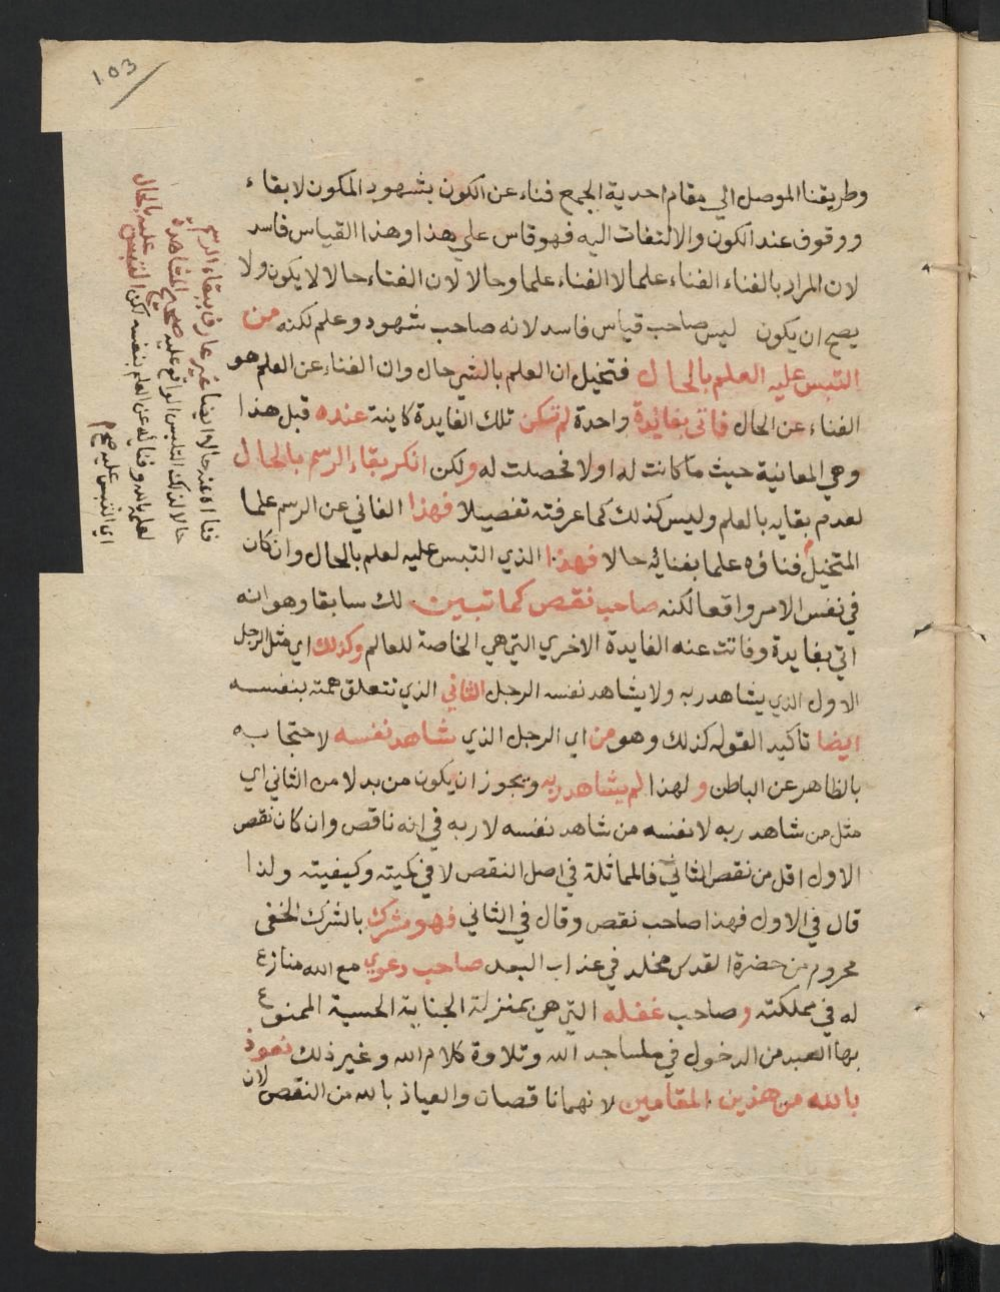 103
وطريقنا الموصل الي مقام احدية الجمع فناء عن الكون بشهود المكون لا بقاء
ووقوف عند الكون والالتفات اليه فهو قاس علي هذا وهذا القياس فاسد
لان المراد بالفناء الفناء علما لا الفناء علما وحالا لان الفناء حالا لا يكون ولا
يصح ان يكون ليس صاحب قياس فاسد لانه صاحب شهود وعلم لكنه من
التبس عليه العلم بالحال فتخيل ان العلم بالشي حال وان الفناء عن العلم هو
الفناء عن الحال فاتى بفائدة واحدة لم تكن تلك الفايدة كاينة عنده قبل هذا
وهي المعانية حيث ما كانت له اولا فحصلت له ولكن انكر بقاء الرسم بالحال
لعدم بقايه بالعلم وليس كذلك كما عرفته تفصيلا فهذا الفاني عن الرسم علما
المتخيل فناؤه علما بفنائه حالا فهذا الذي التبس عليه لعلم بالحال وان كان
في نفس الامر واقعا لكنه صاحب نقص كما تبين لك سابقا وهو انه
اتي بفايدة وفاتت عنه الفايدة الاخري التي هي الخاصة للعالم وكذلك اي مثل الرجل
الاول الذي يشاهد ربه ولا يشاهد نفسه الرجل الثاني الذي تتعلق همته بنفسه
ايضا تاكيد القوله كذلك وهو من اي الرجل الذي شاهد نفسه لاحتجابه
بالظاهر عن الباطن ولهذا لم يشاهد ربه ويجوز ان يكون من بدلا من الثاني اي
مثل من شاهد ربه لا نفسه من شاهد نفسه لا ربه في انه ناقص وان كان نقص
الاول اقل من نقص الثاني فالمماثلة في اصل النقص لا في كميته وكيفيته ولذا
قال في الاول فهذا صاحب نقص وقال في الثاني فهو مشرك بالشرك الخفى
محروم من حضرة القدس مخلد في عذاب البعد صاحب دعوي مع الله منازع
له في مملكته وصاحب غفله التي هي بمنزلة الجنابة الحسية الممنوع
بها العبد من الدخول في المساجد الله وتلاوة كلام الله وغير ذلك نعوذ
بالله من هذين المقامين لانهما ناقصان والعياذ بالله من النقص لان
فناه عنه حالا ايضا غير عارف ببقاء الرسم
حالا لذلك التلبس الواقع عليه صحيح المشاهدة
لعلم بالله وفنائه عن العلم بنفسه لكن التبس عليه بالحال
اي التبس عليه صح